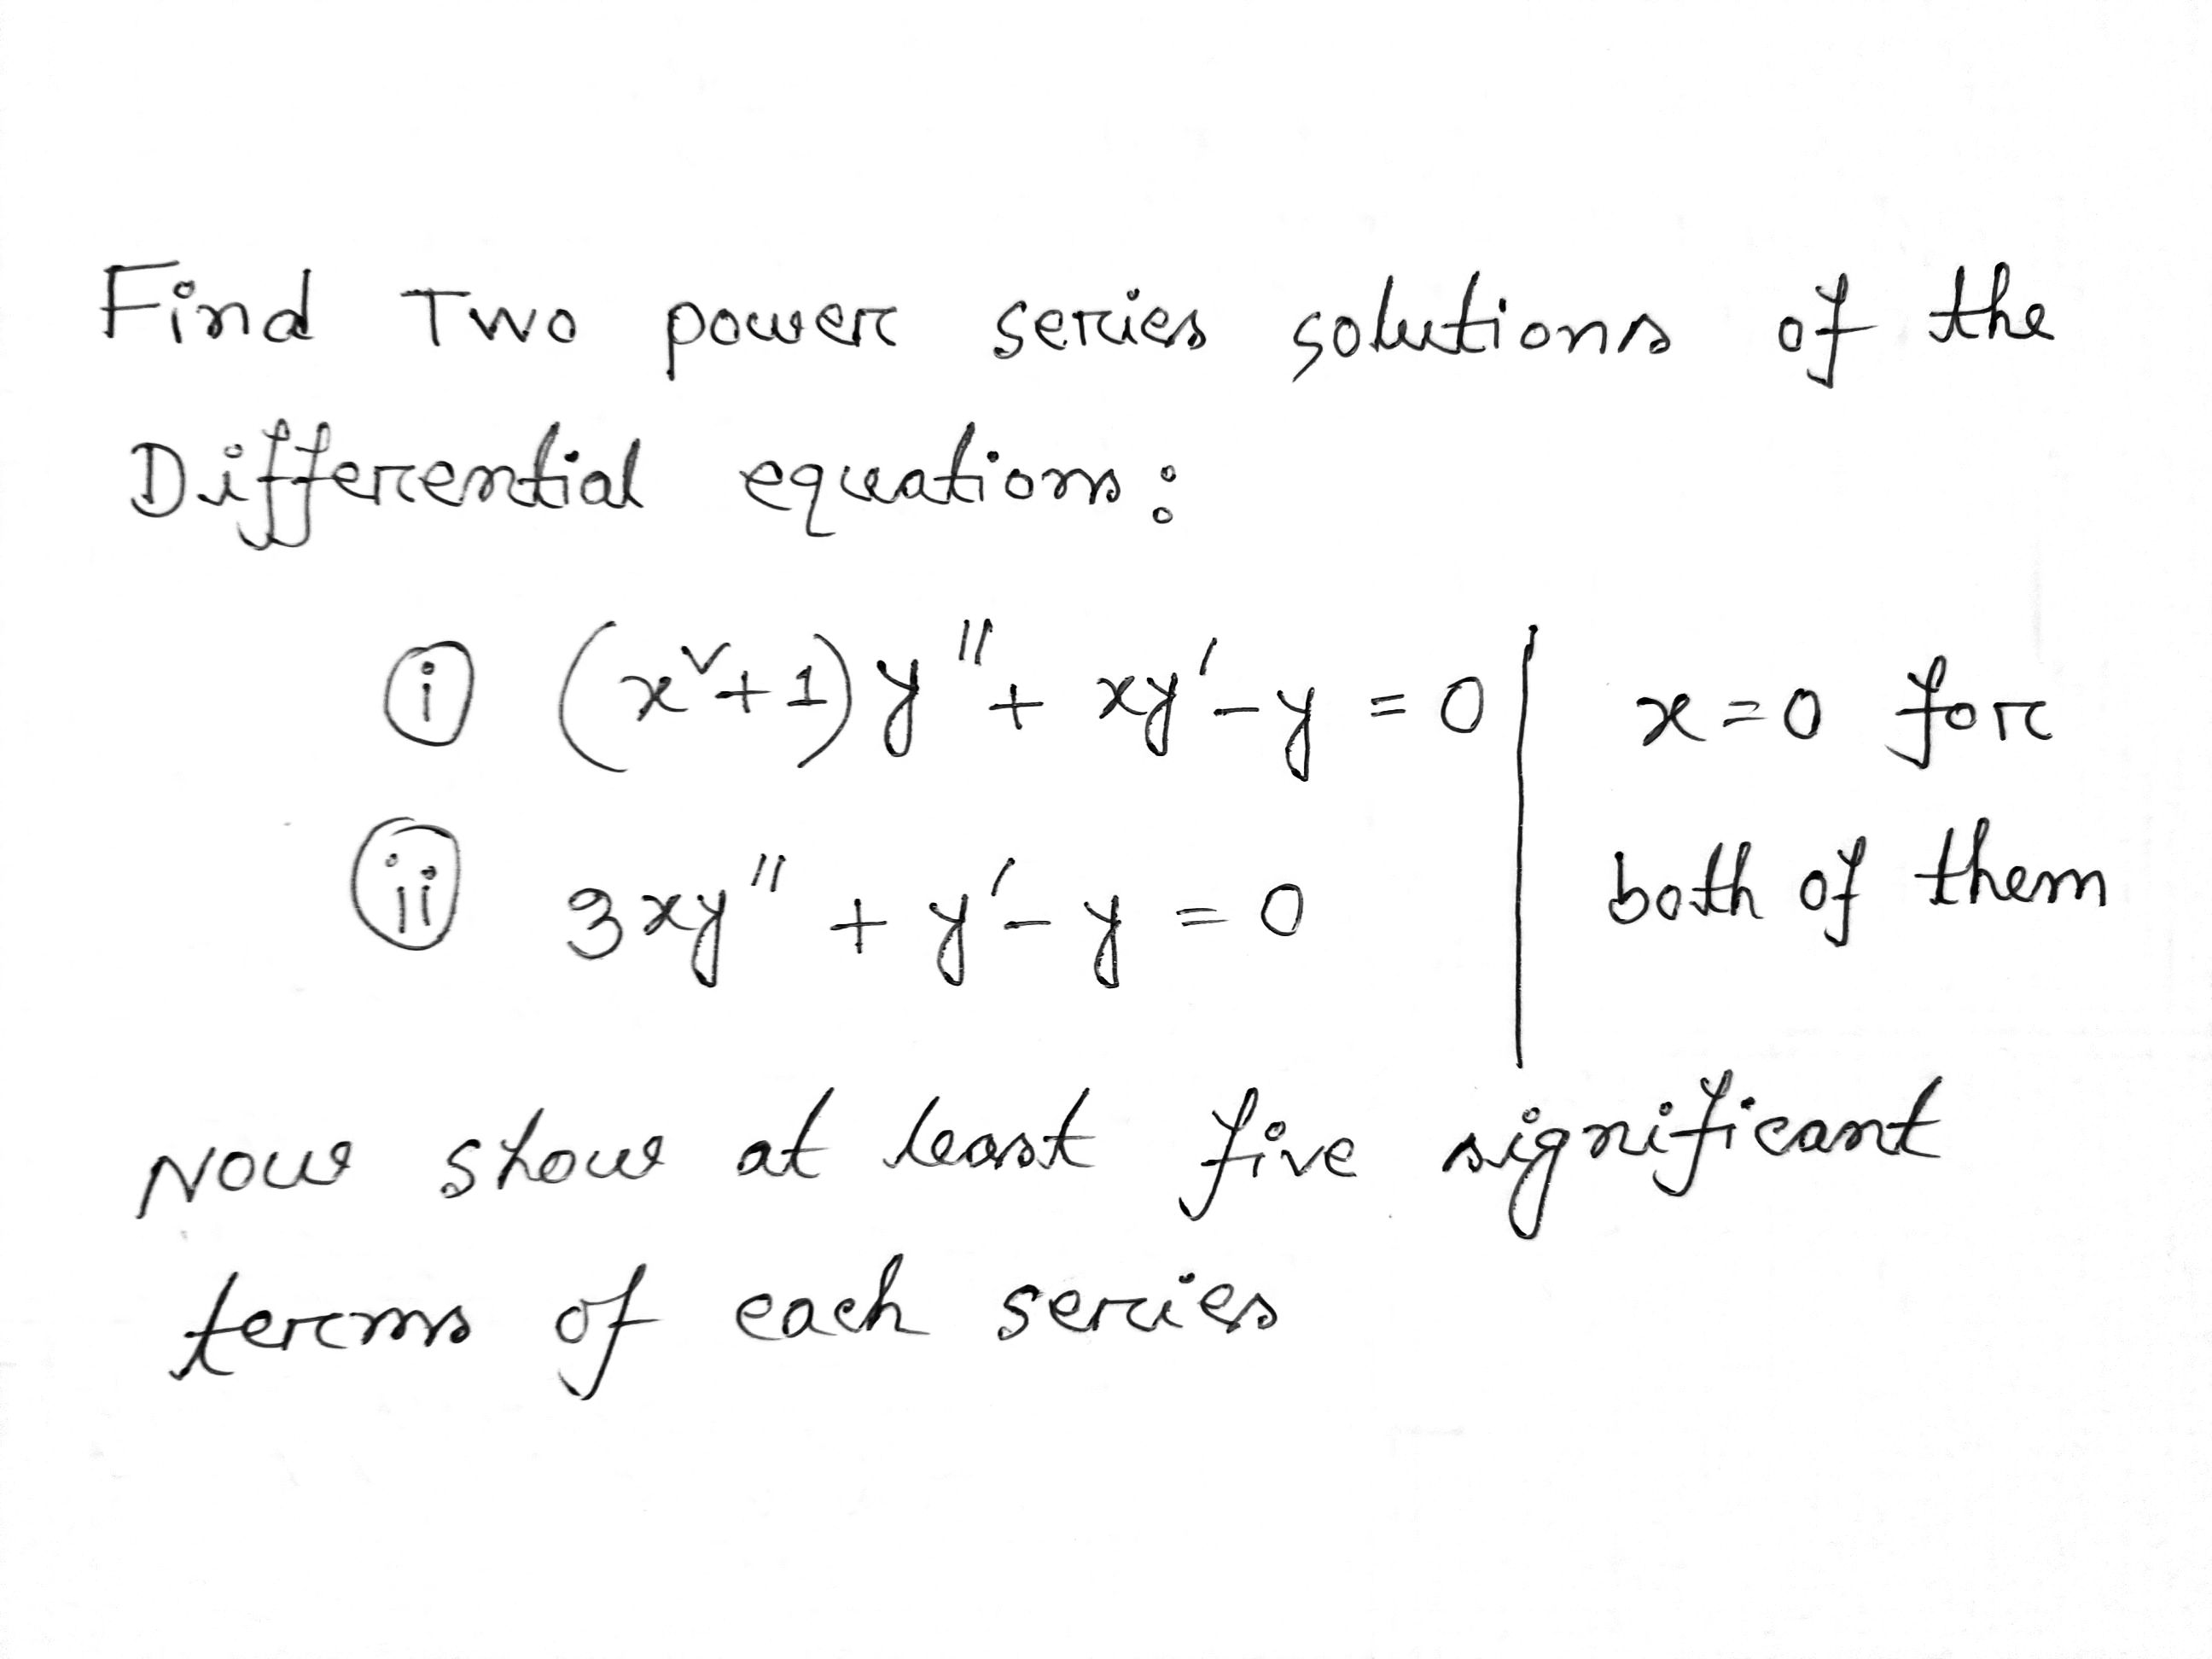 Find Two power series solutions of the
Differential equations:
(i) (x²+1)y'' + xy' - y = 0 | x = 0 for
(ii) 3xy'' + y' - y = 0 | both of them
Now show at least five significant
terms of each series